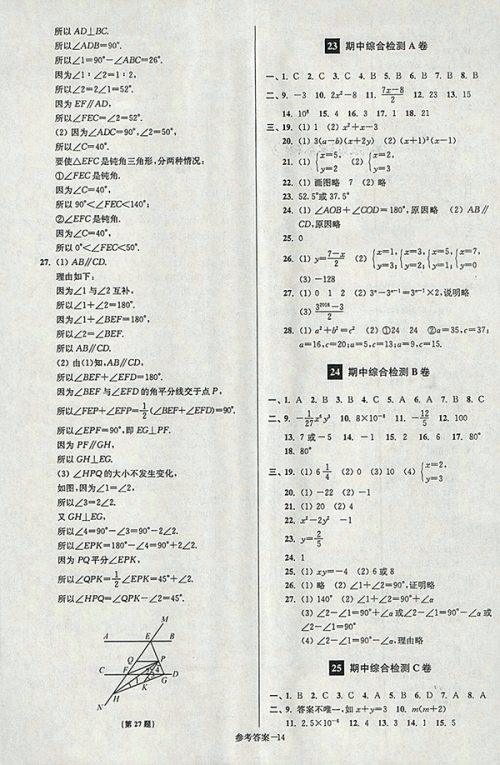 所以 AD⊥BC.
所以∠ADB=90°.
所以∠1=90°-∠ABC=26°.
因为∠1∶∠2=1∶2,
所以∠2=2∠1=52°.
因为 EF∥AD,
所以∠FEC=∠2=52°.
(2) 因为∠ADC=90°,∠2=50°,
所以∠C=40°.
要使△EFC是钝角三角形,分两种情况:
①∠FEC是钝角.
因为∠C=40°,
所以 90°<∠FEC<140°;
②∠EFC是钝角.
因为∠C=40°,
所以 0°<∠FEC<50°.
27. (1) AB∥CD.
理由如下:
因为∠1与∠2互补,
所以∠1+∠2=180°.
因为∠1+∠BEF=180°,
所以∠2=∠BEF.
所以 AB∥CD.
(2) 由(1)知,AB∥CD,
所以∠BEF+∠EFD=180°.
因为∠BEF与∠EFD的角平分线交于点 P,
所以∠FEP+∠EFP=1/2(∠BEF+∠EFD)=90°.
所以∠EPF=90°,即 EG⊥PF.
因为 PF∥GH,
所以 GH⊥EG.
(3) ∠HPQ的大小不发生变化,
如图,因为∠1=∠2,
所以∠3=2∠2.
又 GH⊥EG,
所以∠4=90°-∠3=90°-2∠2.
所以∠EPK=180°-∠4=90°+2∠2.
因为 PQ平分∠EPK,
所以∠QPK=1/2∠EPK=45°+∠2.
所以∠HPQ=∠QPK-∠2=45°.
M
A E B
Q P
C F G D
H K
N
[第27题]
23 期中综合检测A卷
一、1. C 2. C 3. C 4. B 5. B 6. B 7. B 8. B
二、9. -3 10. 2x²-8 11. (7x-8)/2 12. 23 13. 15
14. 10⁸ 15. 4 16. 3 17. 1 18. 21
三、19. (1) 1 (2) x²+x-3
20. (1) 3(a-b)(x+2y) (2) (x+1)²(x-1)
21. (1) {x=5, y=2 (2) {x=2, y=3
22. (1) 画图略 7 (2) 略
23. 52.5°或 37.5°
24. (1) ∠AOB+∠COD=180°,原因略 (2) AB∥
CD,原因略
25. 0
26. (1) y=(7-x)/2 (2) {x=1, y=3; {x=3, y=2; {x=5, y=1; {x=7, y=0
(3) -128
27. (1) 0 1 2 (2) 3ⁿ-3ⁿ⁻¹=3ⁿ⁻¹×2,说明略
(3) (3²⁰¹⁸-3)/2
28. (1) a²+b²=c² (2) ①24 24 ②a=35,c=37;
a=16,c=20;a=5,c=13;a=9,c=15.
24 期中综合检测B卷
一、1. A 2. B 3. B 4. B 5. C 6. A 7. B 8. C
二、9. -1/27x⁶y³ 10. 8×10⁻⁸ 11. -12/5 12. 100
13. 7 或-5 14. -1 15. 2 16. 6 17. 80°
18. 80°
三、19. (1) 6 1/4 (2) 0 (3) 10 (4) {x=2, y=3
20. (1) -22 (2) -1
21. (1) 20 (2) 4
22. x²-2y² -1
23. y=2/5
24. 1
25. (1) xy=-4 (2) 6 或 8
26. (1) 略 (2) ∠1+∠2=90°,证明略
27. (1) 140° (2) ∠1+∠2=90°+∠α
(3) ∠2-∠1=90°+∠α或∠2-∠1=90°-∠α或
∠2-∠1=90°
(4) ∠2-∠1=90°-∠α,理由略
25 期中综合检测C卷
一、1. B 2. C 3. C 4. A 5. B 6. D 7. A 8. A
二、9. 答案不唯一,如 x+y=3 10. m(m+2)
11. 2.5×10⁻⁶ 12. 4 13. 3 14. 1 15. 5
参考答案—14